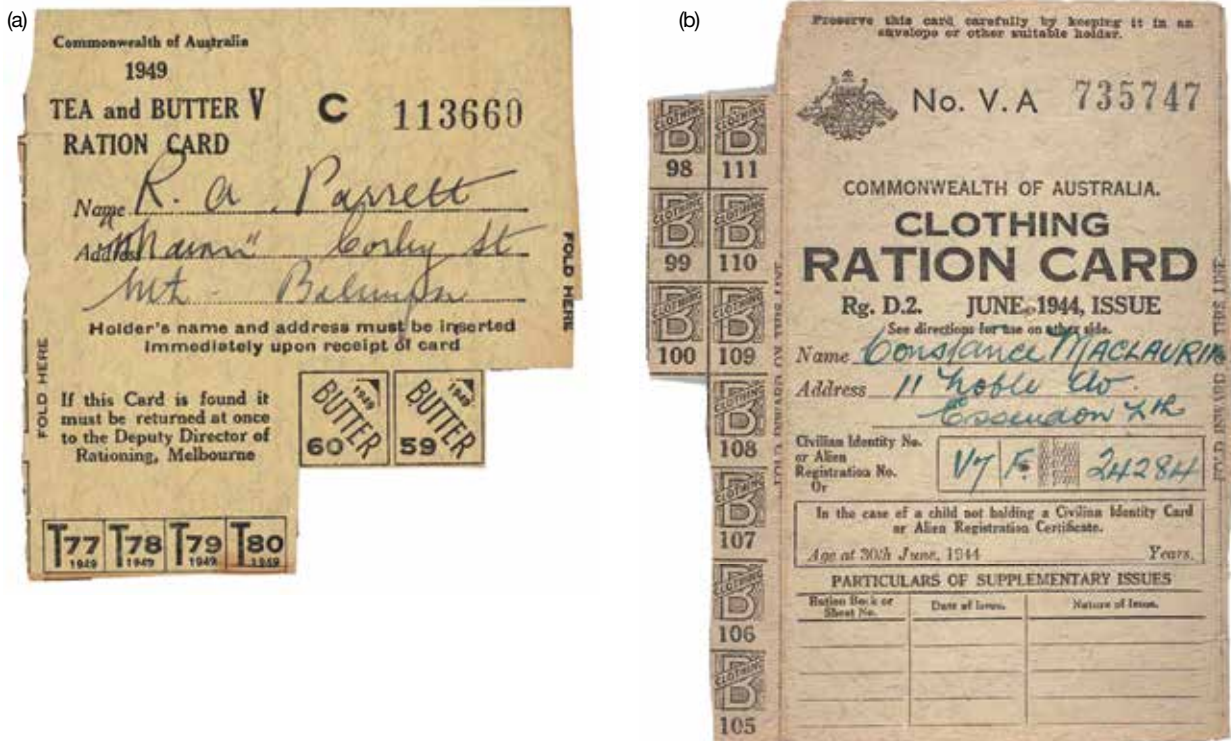 (a)
Commonwealth of Australia
1949
TEA and BUTTER V
RATION CARD
C 113660
Name R. A. Parrett
Address Corby St
Mt.
Holder's name and address must be inserted
immediately upon receipt of card
FOLD HERE
FOLD HERE
If this Card is found it
must be returned at once
to the Deputy Director of
Rationing, Melbourne
1949 BUTTER 60
1949 BUTTER 59
T77 1949 T78 1949 T79 1949 T80 1949
(b)
Preserve this card carefully by keeping it in an
envelope or other suitable holder.
No. V.A 735747
COMMONWEALTH OF AUSTRALIA.
CLOTHING
RATION CARD
Rg. D.2. JUNE, 1944, ISSUE
See directions for use on other side.
Name Constance MACLAURIN
Address 11 Noble Av.
Essendon
Civilian Identity No.
or Alien
Registration No.
Or
VY F. 24284
In the case of a child not holding a Civilian Identity Card
or Alien Registration Certificate.
Age at 30th June, 1944 Years.
PARTICULARS OF SUPPLEMENTARY ISSUES
Ration Book or
Sheet No.
Date of Issue.
Nature of Issue.
FOLD INWARD ON THIS LINE
FOLD INWARD ON THIS LINE
B CLOTHING 98
B CLOTHING 111
B CLOTHING 99
B CLOTHING 110
B CLOTHING 100
B CLOTHING 109
B CLOTHING 108
B CLOTHING 107
B CLOTHING 106
B CLOTHING 105